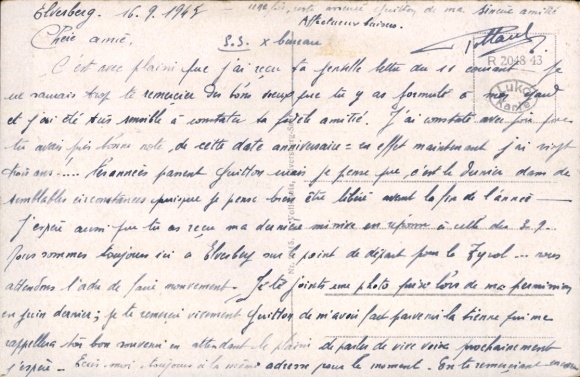 Elversberg. 16.9.1945
vote avance Guitton de ma sincère amitié
Affectueux baisers.
Chère amie. S.S. x bureau
R 2048 43
Luko Karte
C'est avec plaisir que j'ai reçu ta gentille lettre du 11 courant Je
ne saurais trop te remercier des bons vœux que tu y as formulé à mon
et j'ai été très sensible à constater ta fidèle amitié. J'ai constaté avec joie que
tu avais pris bonne note de cette date anniversaire = en effet maintenant j'ai vingt
trois ans!... Les années passent Guitton mais je pense que c'est le dernier dans de
semblables circonstances puisque je pense bien être libéré avant la fin de l'année —
J'espère aussi que tu as reçu ma dernière missive en réponse à celle des 2.9.
Nous sommes toujours ici à Elversberg sur le point de départ pour le Tyrol... nous
attendons l'ordre de faire mouvement. Je te joints une photo prise lors de ma permission
en juin dernier; je te remercie vivement Guitton de m'avoir fait parvenir la tienne qui me
rappellera ton bon souvenir en attendant le plaisir de parler de vive voix prochainement
j'espère. Ecris-moi toujours à la même adresse pour le moment. En te remerciant encore